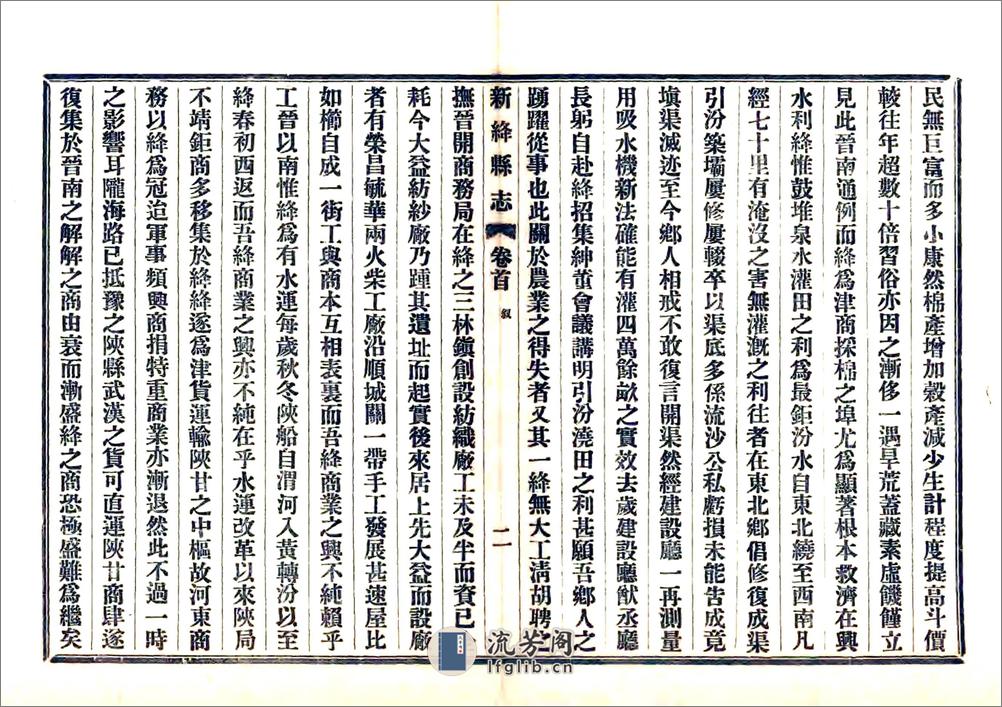 民無巨富而多小康然棉產增加穀產減少生計程度提高斗價
較往年超數十倍習俗亦因之漸侈一遇旱荒蓋藏素虛饑饉立
見此晉南通例而絳為津商採棉之埠尤為顯著根本救濟在興
水利絳惟鼓堆泉水灌田之利為最鉅汾水自東北繞至西南凡
經七十里有淹沒之害無灌溉之利往者在東北鄉倡修復成渠
引汾築壩屢修屢輟卒以渠底多係流沙公私虧損未能告成竟
塡渠滅迹至今鄉人相戒不敢復言開渠然經建設廳一再測量
用吸水機新法確能有灌四萬餘畝之實效去歲建設廳猷丞廳
長躬自赴絳招集紳董會議講明引汾澆田之利甚願吾鄉人之
踴躍從事也此關於農業之得失者又其一絳無大工淸胡聘之
新絳縣志 卷首 叙 二
撫晉開商務局在絳之三林鎭創設紡織廠工未及半而資已
耗今大益紡紗廠乃踵其遺址而起實後來居上先大益而設廠
者有榮昌毓華兩火柴工廠沿順城關一帶手工發展甚速屋比
如櫛自成一街工與商本互相表裏而吾絳商業之興不純賴乎
工晉以南惟絳為有水運每歲秋冬陝船自渭河入黃轉汾以至
絳春初西返而吾絳商業之興亦不純在乎水運改革以來陝局
不靖鉅商多移集於絳絳遂為津貨運輸陝甘之中樞故河東商
務以絳為冠迨軍事頻興商捐特重商業亦漸退然此不過一時
之影響耳隴海路已抵豫之陝縣武漢之貨可直運陝甘商肆遂
復集於晉南之解解之商由衰而漸盛絳之商恐極盛難為繼矣
流芳阁
lfglib.cn